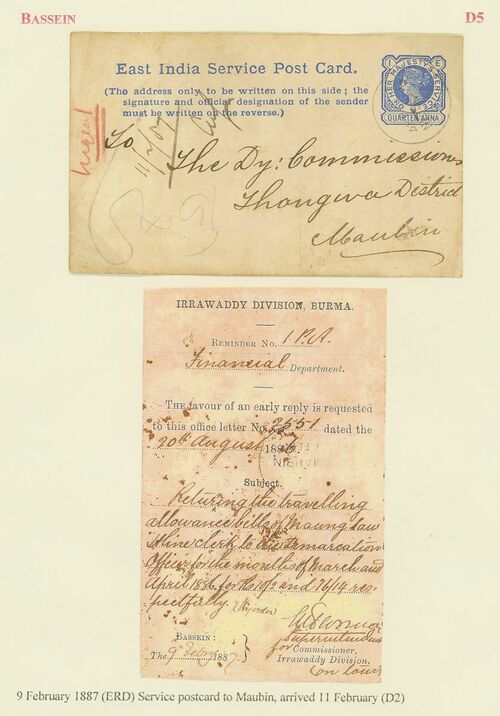 BASSEIN
D5
East India Service Post Card.
(The address only to be written on this side; the
signature and official designation of the sender
must be written on the reverse.)
ON HER MAJESTY'S SERVICE
QUARTER ANNA
Urgent
To
The Dy: Commissioner
Thongwa District
Maubin
IRRAWADDY DIVISION, BURMA.
REMINDER No. 1 P.A.
Financial Department.
THE favour of an early reply is requested
to this office letter No. 2551 dated the
20th August 1886.
MAUBIN
Subject.
Returning the travelling
allowance bills of Maung Saw
Hline clerk to the Demarcation
Officer for the months of March and
April 1886 for Rs 10/2 and 76/14 res-
pectfully. (By order)
Superintendent
for Commissioner,
Irrawaddy Division.
(on tour)
BASSEIN:
The 9th Feby 1887.
9 February 1887 (ERD) Service postcard to Maubin, arrived 11 February (D2)